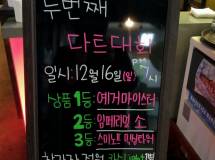 두번째
다트대회
일시:12월16일(일) PM
상품 1등:예거마이스터
2등:임페리얼 소
3등:스미노프
참가자전원